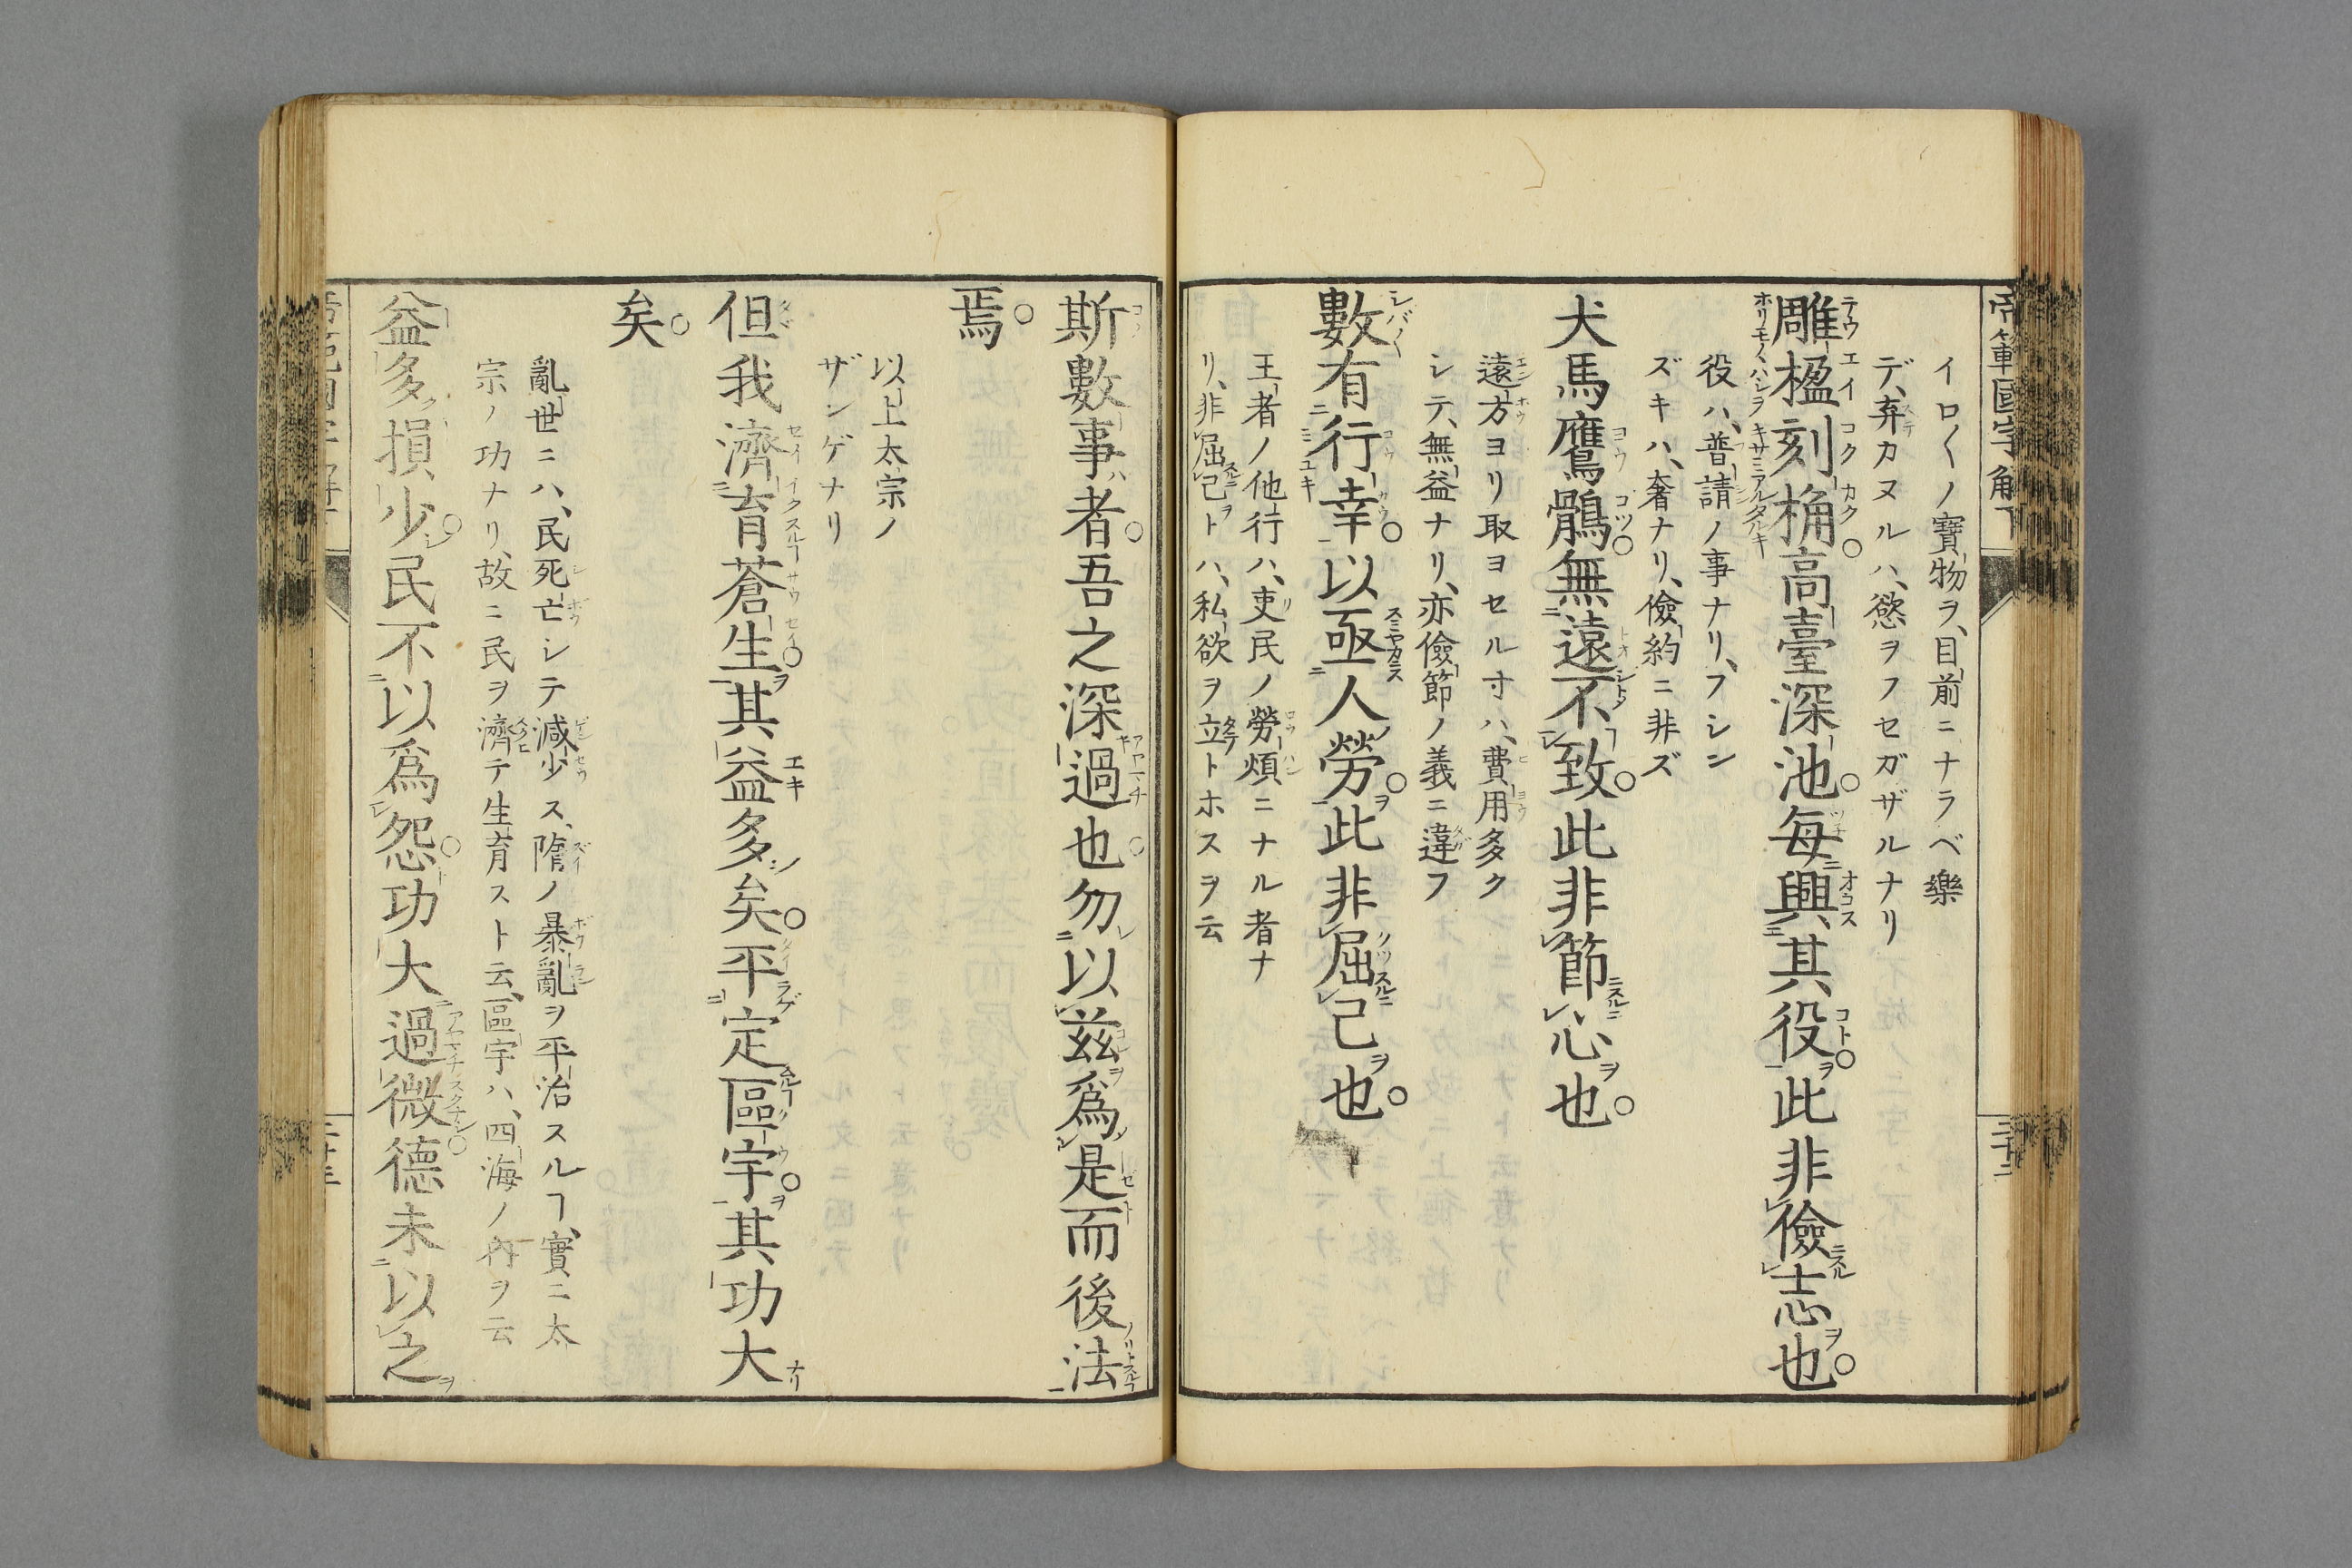 帝範國字解下
イロ〱ノ寶物ヲ、目前ニナラベ樂
デ、弃カヌルハ、慾ヲフセガザルナリ
雕楹刻桷。高臺深池。每興其役。此非儉志也。
役ハ、普請ノ事ナリ、フシン
ズキハ、奢ナリ、儉約ニ非ズ
犬馬鷹鶻。無遠不致。此非節心也。
遠方ヨリ取ヨセル寸ハ、費用多ク
シテ、無益ナリ、亦儉節ノ義ニ違フ
數有行幸。以亟人勞。此非屈己也。
王者ノ他行ハ、吏民ノ勞煩ニナル者ナ
リ、非屈己トハ、私欲ヲ立トホスヲ云
斯數事者。吾之深過也。勿以茲爲是而後法
焉。
以上太宗ノ
ザンゲナリ
但我濟育蒼生。其益多矣。平定區宇。其功大
矣。
亂世ニハ、民死亡シテ減少ス、隋ノ暴亂ヲ平治スルヿ、實ニ太
宗ノ功ナリ、故ニ民ヲ濟テ生育スト云、區宇ハ、四海ノ內ヲ云
益多損少。民不以爲怨。功大過微。德未以之